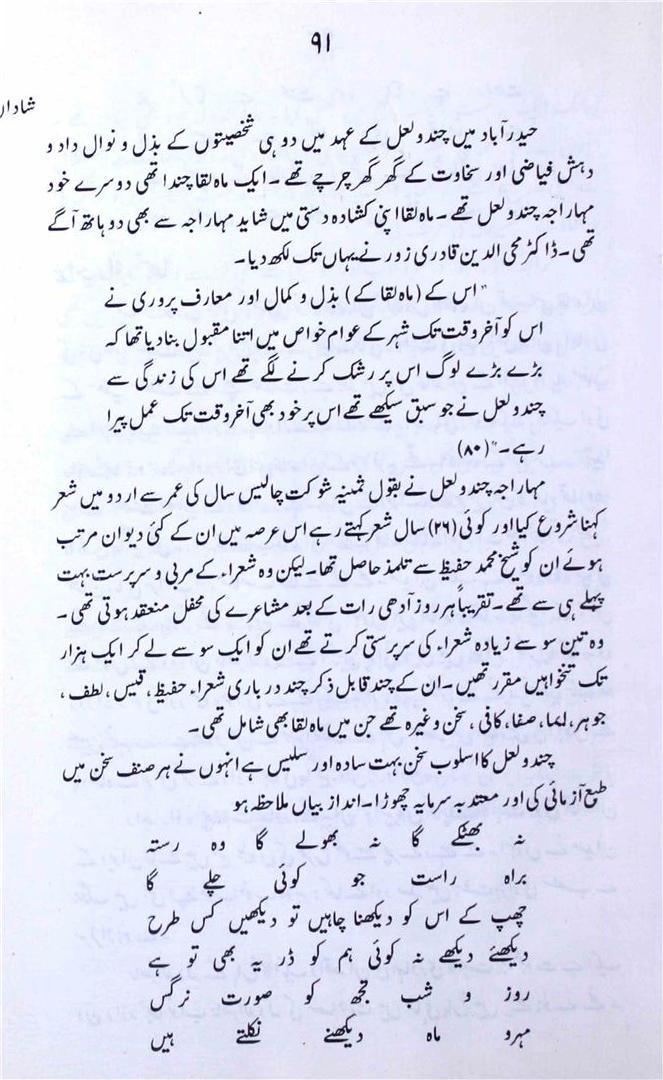 ۹۱
شاداں
حیدرآباد میں چندولعل کے عہد میں دو ہی شخصیتوں کے بذل و نوال داد و
دہش فیاضی اور سخاوت کے گھر گھر چرچے تھے۔ ایک ماہ لقا چندا تھی دوسرے خود
مہاراجہ چندولعل تھے۔ ماہ لقا اپنی کشادہ دستی میں شاید مہاراجہ سے بھی دو ہاتھ آگے
تھی۔ ڈاکٹر محی الدین قادری زور نے یہاں تک لکھ دیا۔
"اس کے (ماہ لقا کے) بذل و کمال اور معارف پروری نے
اس کو آخر وقت تک شہر کے عوام خواص میں اتنا مقبول بنا دیا تھا کہ
بڑے بڑے لوگ اس پر رشک کرنے لگے تھے اس کی زندگی سے
چندولعل نے جو سبق سیکھے تھے اس پر خود بھی آخر وقت تک عمل پیرا
رہے۔" (۸۰)
مہاراجہ چندولعل نے بقول ثمینہ شوکت چالیس سال کی عمر سے اردو میں شعر
کہنا شروع کیا اور کوئی (۲۶) سال شعر کہتے رہے اس عرصہ میں ان کے کئی دیوان مرتب
ہوئے ان کو شیخ محمد حفیظ سے تلمذ حاصل تھا۔ لیکن وہ شعراء کے مربی و سرپرست بہت
پہلے ہی سے تھے۔ تقریباً ہر روز آدھی رات کے بعد مشاعرے کی محفل منعقد ہوتی تھی۔
وہ تین سو سے زیادہ شعراء کی سرپرستی کرتے تھے ان کو ایک سو سے لے کر ایک ہزار
تک تنخواہیں مقرر تھیں۔ ان کے چند قابل ذکر چند درباری شعراء حفیظ، قیس، لطف،
جوہر، لمٰا، صفا، کافی، سخن وغیرہ تھے جن میں ماہ لقا بھی شامل تھی۔
چندولعل کا اسلوب سخن بہت سادہ اور سلیس ہے انہوں نے ہر صنف سخن میں
طبع آزمائی کی اور معتدبہ سرمایہ چھوڑا۔ انداز بیاں ملاحظہ ہو
نہ بھٹکے گا نہ بھولے گا وہ رستہ
براہ راست جو کوئی چلے گا
چھپ کے اس کو دیکھنا چاہیں تو دیکھیں کس طرح
دیکھئے دیکھے نہ کوئی ہم کو ڈر یہ بھی تو ہے
روز و شب تجھ کو صورت نرگس
مہرو ماہ دیکھنے نکلتے ہیں